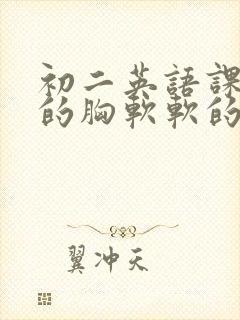 初二英語課
的胸軟軟的
翼冲天